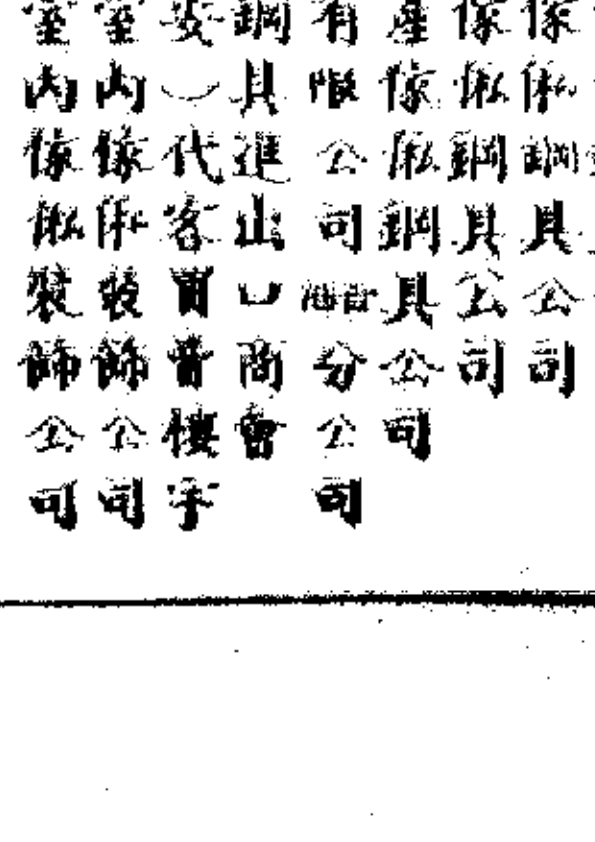 傢俬鋼具公司
傢俬鋼具公司
產傢俬鋼具公司
有限公司分公司
鋼具進出口商會
安）代客買賣樓宇
室內傢俬裝飾公司
室內傢俬裝飾公司